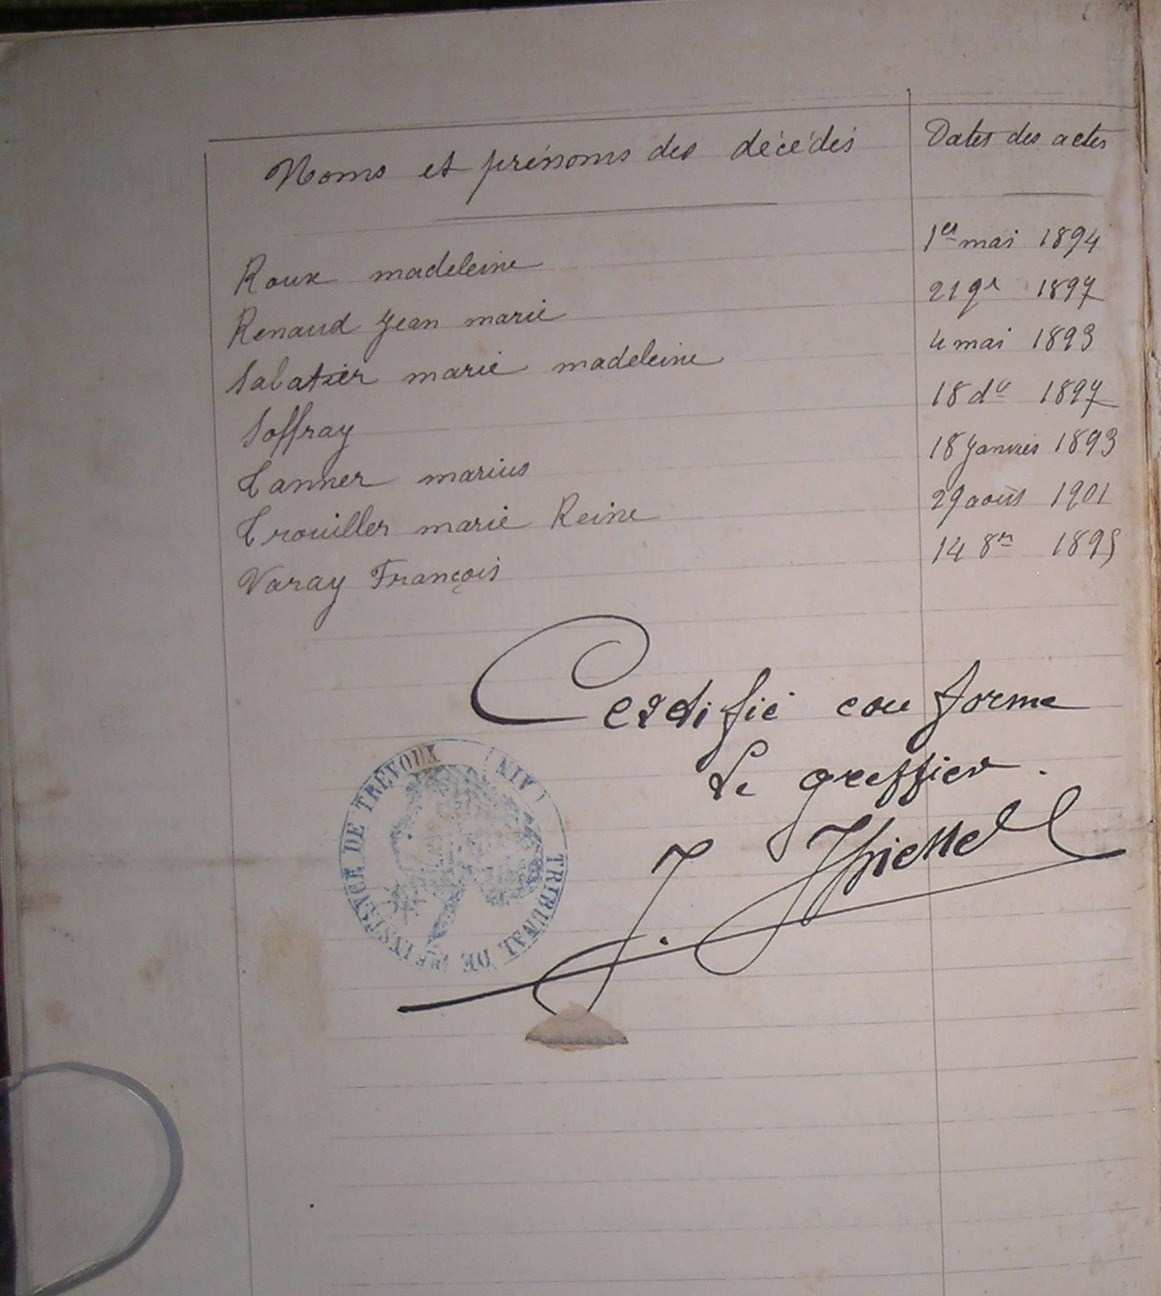 Noms et prénoms des décédés Dates des actes
Roux madeleine 1er mai 1894
Renaud Jean marie 21 9r 1897
Sabatier marie madeleine 4 mai 1893
Soffray 18 du 1897
Tanner marius 18 Janvier 1893
Trouiller marie Reine 29 août 1901
Varay François 14 8re 1895
Certifié conforme
Le greffier.
TRIBUNAL DE 1ère INSTANCE DE TRÉVOUX (AIN)